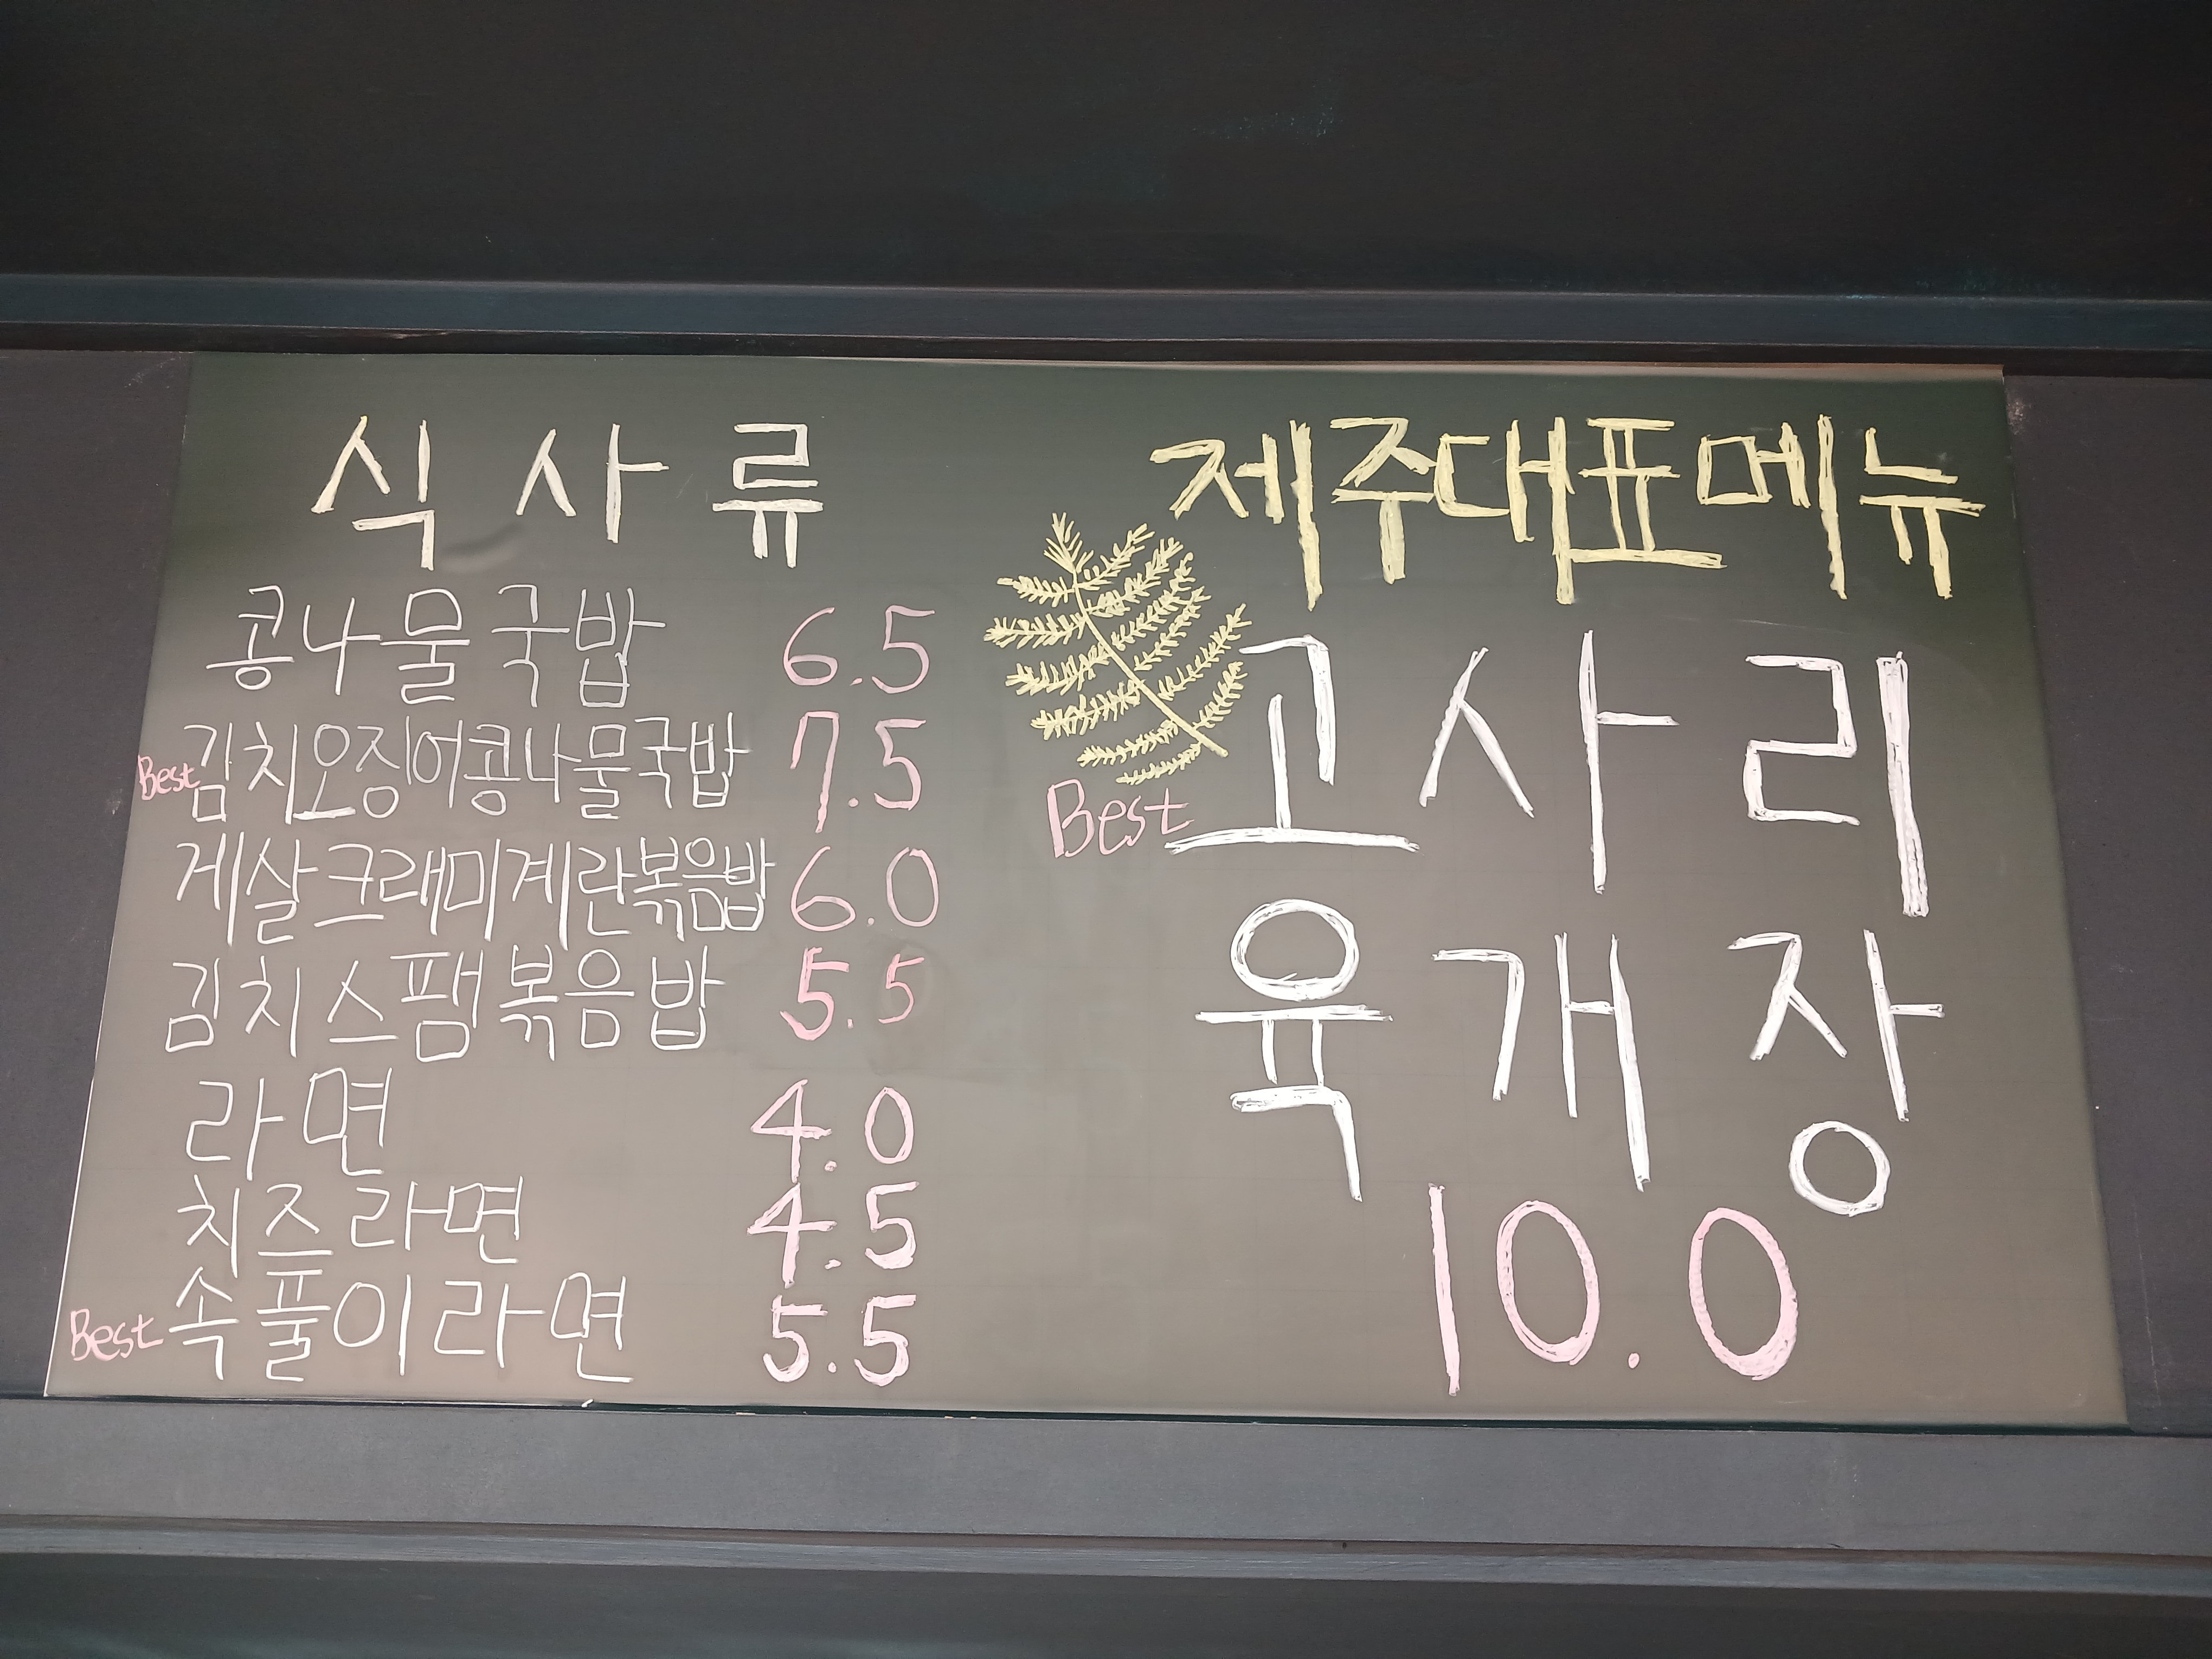 식사류
콩나물국밥 6.5
Best 김치오징어콩나물국밥 7.5
게살크래미계란볶음밥 6.0
김치스팸볶음밥 5.5
라면 4.0
치즈라면 4.5
Best 속풀이라면 5.5
제주대표메뉴
Best 고사리
육개장
10.0